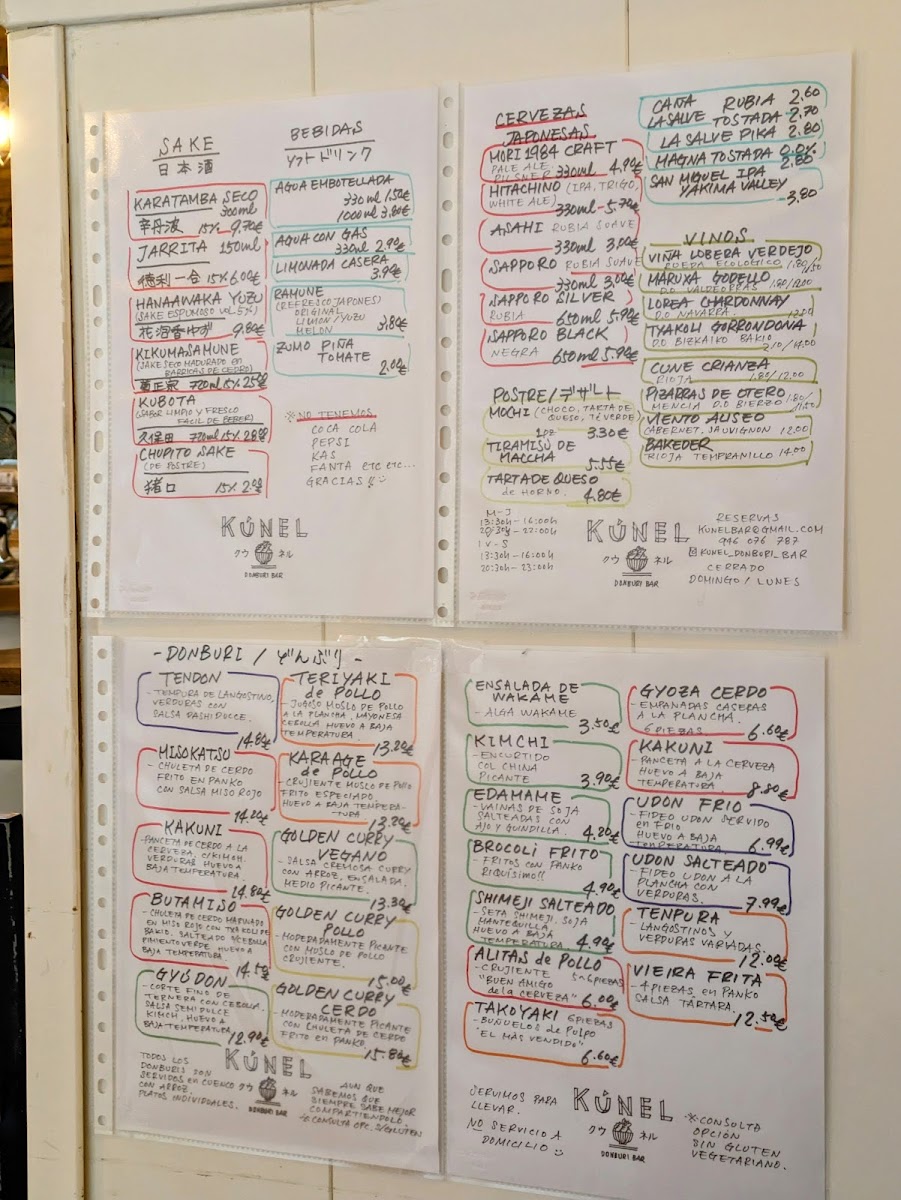 SAKE
日本酒
KARATAMBA SECO
300ml
辛丹波 15% 9.70€
JARRITA 150ml
徳利一合 15% 6.00€
HANAAWAKA YUZU
(SAKE ESPUMOSO VOL 5%)
花泡香ゆず 9.80€
KIKUMASAMUNE
(SAKE SECO MADURADO EN
BARRICAS DE CEDRO)
菊正宗 720ml 15% 25€
KUBOTA
(SABOR LIMPIO Y FRESCO
FACIL DE BEBER)
久保田 720ml 15% 28€
CHUPITO SAKE
(DE POSTRE)
猪口 15% 2.00€
BEBIDAS
ソフトドリンク
AGUA EMBOTELLADA
330 ml 1.50€
1000 ml 3.80€
AGUA CON GAS
330ml 2.90€
LIMONADA CASERA
3.90€
RAMUNE
(REFRESCO JAPONES)
ORIGINAL
LIMON/YUZU
MELON 3.80€
ZUMO PIÑA
TOMATE
2.00€
※NO TENEMOS
COCA COLA
PEPSI
KAS
FANTA etc etc...
GRACIAS!!
KÚNEL
クウ ネル
DONBURI BAR
CERVEZAS
JAPONESAS
MORI 1984 CRAFT
PALE ALE
PILSNER 330ml 4.90€
HITACHINO (IPA, TRIGO,
WHITE ALE)
330ml - 5.70€
ASAHI RUBIA SUAVE
330ml 3.00€
SAPPORO RUBIA SUAVE
330ml 3.00€
SAPPORO SILVER
RUBIA 650ml 5.90€
SAPPORO BLACK
NEGRA 650ml 5.90€
POSTRE/デザート
MOCHI (CHOCO, TARTA DE
QUESO, TÉ VERDE)
3.30€
TIRAMISÚ DE
MACCHA
5.55€
TARTA DE QUESO
de HORNO. 4.80€
CAÑA RUBIA 2.60
LA SALVE TOSTADA 2.70
LA SALVE PIKA 2.80
MAGNA TOSTADA 0.0%
2.80
SAN MIGUEL IPA
YAKIMA VALLEY
3.80
VINOS
VIÑA LOBERA VERDEJO
RUEDA ECOLOGICO 1.80/
MARUXA GODELLO
D.O VALDEORRAS 1.80/12.00
LOREA CHARDONNAY
D.O NAVARRA
TXAKOLI GORRONDONA
D.O BIZKAIKO BAKIO
2.10/14.00
CUNE CRIANZA
RIOJA 1.80/12.00
PIZARRAS DE OTERO
MENCIA D.O BIERZO 1.80/
11.50
VIENTO ALISEO
CABERNET, SAUVIGNON 12.00
BAKEDER
RIOJA TEMPRANILLO 14.00
M-J
13:30h-16:00h
20:30h-22:00h
V-S
13:30h-16:00h
20:30h-23:00h
KÚNEL
クウ ネル
DONBURI BAR
RESERVAS
KUNELBAR@GMAIL.COM
946 076 787
KUNEL_DONBURI_BAR
CERRADO
DOMINGO / LUNES
-DONBURI / どんぶり-
TENDON
- TEMPURA DE LANGOSTINO,
VERDURAS CON
SALSA DASHI DULCE.
14.80€
MISOKATSU
- CHULETA DE CERDO
FRITO EN PANKO
CON SALSA MISO ROJO
14.20€
KAKUNI
- PANCETA DE CERDO A LA
CERVEZA, C/KIMCHI,
VERDURAS HUEVO A
BAJA TEMPERATURA.
14.80€
BUTAMISO
- CHULETA DE CERDO MARINADO
EN MISO ROJO CON TXAKOLI DE
BAKIO. SALTEADO CEBOLLA
PIMIENTO VERDE, HUEVO A
BAJA TEMPERATURA.
14.50€
GYŪDON
- CORTE FINO DE
TERNERA CON CEBOLLA.
SALSA SEMI DULCE
KIMCHI, HUEVO A
BAJA TEMPERATURA
12.90€
TERIYAKI
de POLLO
- JUGOSO MUSLO DE POLLO
A LA PLANCHA, MAYONESA
CEBOLLA HUEVO A BAJA
TEMPERATURA.
13.20€
KARAAGE
de POLLO
- CRUJIENTE MUSLO DE POLLO
FRITO ESPECIADO.
HUEVO A BAJA TEMPERA-
TURA
13.20€
GOLDEN CURRY
VEGANO
- SALSA CREMOSA CURRY
CON ARROZ, ENSALADA.
MEDIO PICANTE.
13.30€
GOLDEN CURRY
POLLO
- MODERADAMENTE PICANTE
CON MUSLO DE POLLO
CRUJIENTE.
15.00€
GOLDEN CURRY
CERDO
- MODERADAMENTE PICANTE
CON CHULETA DE CERDO
FRITO EN PANKO.
15.80€
TODOS LOS
DONBURIS SON
SERVIDOS EN CUENCO
CON ARROZ.
PLATOS INDIVIDUALES.
KÚNEL
クウ ネル
DONBURI BAR
AUN QUE
SABEMOS QUE
SIEMPRE SABE MEJOR
COMPARTIENDOLO.
※CONSULTA OPC. S/GLUTEN
ENSALADA DE
WAKAME
- ALGA WAKAME
3.50€
KIMCHI
- ENCURTIDO
COL CHINA
PICANTE 3.90€
EDAMAME
- VAINAS DE SOJA
SALTEADAS CON
AJO Y GUINDILLA. 4.20€
BROCOLI FRITO
- FRITOS CON PANKO
RIQUÍSIMO!!
4.90€
SHIMEJI SALTEADO
- SETA SHIMEJI, SOJA
MANTEQUILLA
HUEVO A BAJA
TEMPERATURA 4.90€
ALITAS de POLLO
- CRUJIENTE 5-6 PIEZAS
"BUEN AMIGO
de la CERVEZA" 6.00€
TAKOYAKI 6 PIEZAS
- BUÑUELOS de PULPO
"EL MÁS VENDIDO"
6.60€
GYOZA CERDO
- EMPANADAS CASERAS
A LA PLANCHA.
6 PIEZAS 6.60€
KAKUNI
- PANCETA A LA CERVEZA
HUEVO A BAJA
TEMPERATURA. 8.80€
UDON FRIO
- FIDEO UDON SERVIDO
en FRIO
HUEVO A BAJA
TEMPERATURA 6.99€
UDON SALTEADO
- FIDEO UDON A LA
PLANCHA CON
VERDURAS.
7.99€
TENPURA
- LANGOSTINOS Y
VERDURAS VARIADAS.
12.00€
VIEIRA FRITA
- 4 PIEZAS, en PANKO
SALSA TÁRTARA.
12.50€
SERVIMOS PARA
LLEVAR.
NO SERVICIO A
DOMICILIO
KÚNEL
クウ ネル
DONBURI BAR
※CONSULTA
OPCIÓN
SIN GLUTEN
VEGETARIANO.